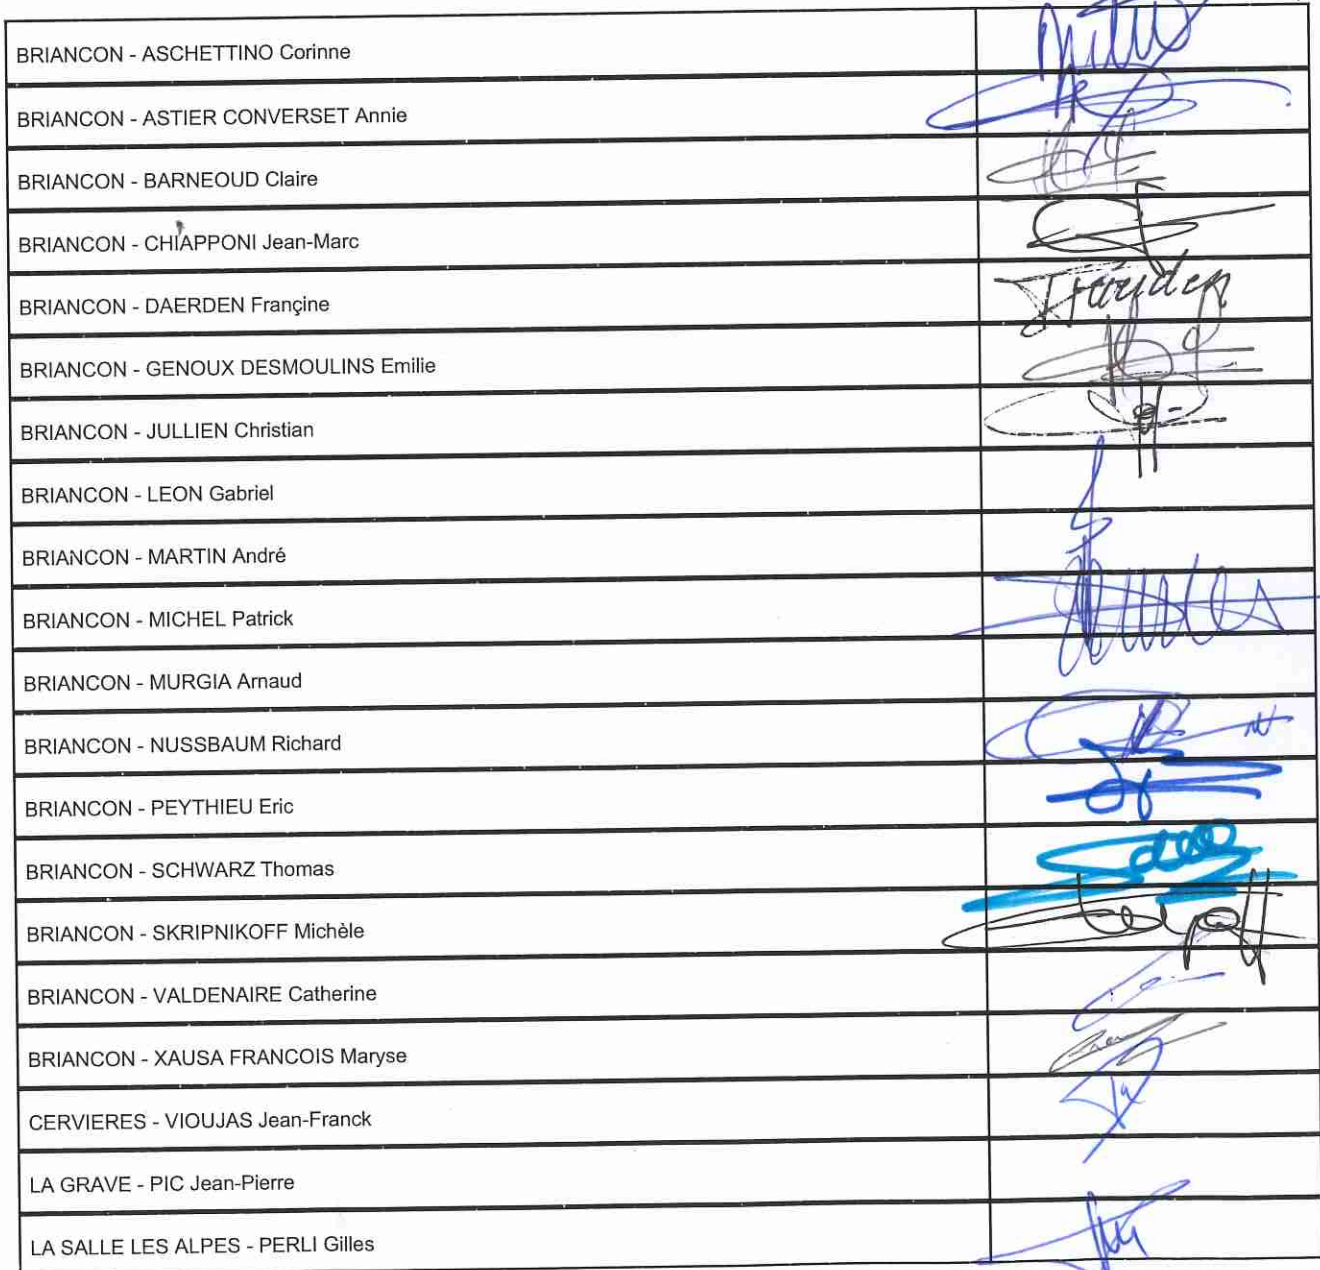 BRIANCON - ASCHETTINO Corinne
BRIANCON - ASTIER CONVERSET Annie
BRIANCON - BARNEOUD Claire
BRIANCON - CHIAPPONI Jean-Marc
BRIANCON - DAERDEN Françine
BRIANCON - GENOUX DESMOULINS Emilie
BRIANCON - JULLIEN Christian
BRIANCON - LEON Gabriel
BRIANCON - MARTIN André
BRIANCON - MICHEL Patrick
BRIANCON - MURGIA Arnaud
BRIANCON - NUSSBAUM Richard
BRIANCON - PEYTHIEU Eric
BRIANCON - SCHWARZ Thomas
BRIANCON - SKRIPNIKOFF Michèle
BRIANCON - VALDENAIRE Catherine
BRIANCON - XAUSA FRANCOIS Maryse
CERVIERES - VIOUJAS Jean-Franck
LA GRAVE - PIC Jean-Pierre
LA SALLE LES ALPES - PERLI Gilles